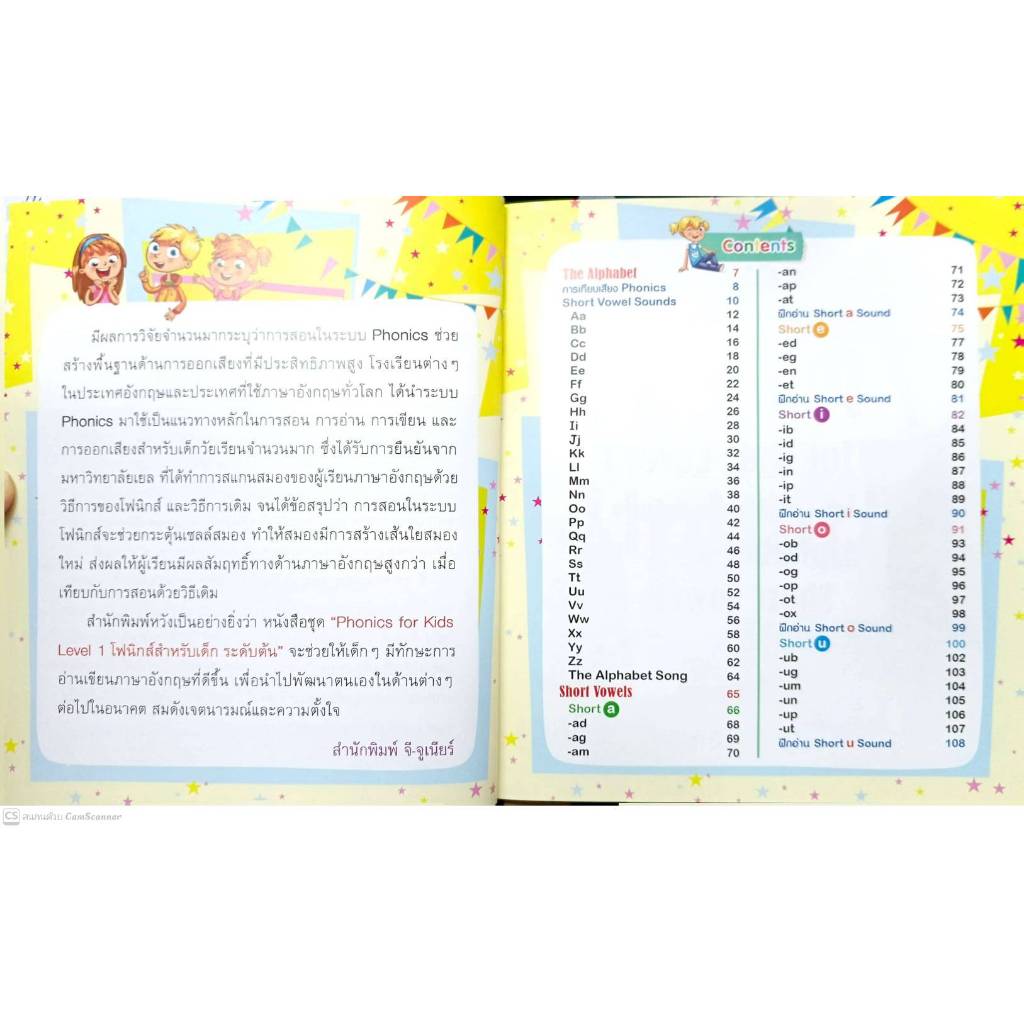 มีผลการวิจัยจำนวนมากระบุว่าการสอนในระบบ Phonics ช่วย
สร้างพื้นฐานด้านการออกเสียงที่มีประสิทธิภาพสูง โรงเรียนต่างๆ
ในประเทศอังกฤษและประเทศที่ใช้ภาษาอังกฤษทั่วโลก ได้นำระบบ
Phonics มาใช้เป็นแนวทางหลักในการสอน การอ่าน การเขียน และ
การออกเสียงสำหรับเด็กวัยเรียนจำนวนมาก ซึ่งได้รับการยืนยันจาก
มหาวิทยาลัยเยล ที่ได้ทำการสแกนสมองของผู้เรียนภาษาอังกฤษด้วย
วิธีการของโฟนิกส์ และวิธีการเดิม จนได้ข้อสรุปว่า การสอนในระบบ
โฟนิกส์จะช่วยกระตุ้นเซลล์สมอง ทำให้สมองมีการสร้างเส้นใยสมอง
ใหม่ ส่งผลให้ผู้เรียนมีผลสัมฤทธิ์ทางด้านภาษาอังกฤษสูงกว่า เมื่อ
เทียบกับการสอนด้วยวิธีเดิม
สำนักพิมพ์หวังเป็นอย่างยิ่งว่า หนังสือชุด “Phonics for Kids
Level 1 โฟนิกส์สำหรับเด็ก ระดับต้น” จะช่วยให้เด็กๆ มีทักษะการ
อ่านเขียนภาษาอังกฤษที่ดีขึ้น เพื่อนำไปพัฒนาตนเองในด้านต่างๆ
ต่อไปในอนาคต สมดังเจตนารมณ์และความตั้งใจ
สำนักพิมพ์ จี-จูเนียร์
Contents
The Alphabet 7
การเทียบเสียง Phonics 8
Short Vowel Sounds 10
Aa 12
Bb 14
Cc 16
Dd 18
Ee 20
Ff 22
Gg 24
Hh 26
Ii 28
Jj 30
Kk 32
Ll 34
Mm 36
Nn 38
Oo 40
Pp 42
Qq 44
Rr 46
Ss 48
Tt 50
Uu 52
Vv 54
Ww 56
Xx 58
Yy 60
Zz 62
The Alphabet Song 64
Short Vowels 65
Short a 66
-ad 68
-ag 69
-am 70
-an 71
-ap 72
-at 73
ฝึกอ่าน Short a Sound 74
Short e 75
-ed 77
-eg 78
-en 79
-et 80
ฝึกอ่าน Short e Sound 81
Short i 82
-ib 84
-id 85
-ig 86
-in 87
-ip 88
-it 89
ฝึกอ่าน Short i Sound 90
Short o 91
-ob 93
-od 94
-og 95
-op 96
-ot 97
-ox 98
ฝึกอ่าน Short o Sound 99
Short u 100
-ub 102
-ug 103
-um 104
-un 105
-up 106
-ut 107
ฝึกอ่าน Short u Sound 108
CS สแกนด้วย CamScanner